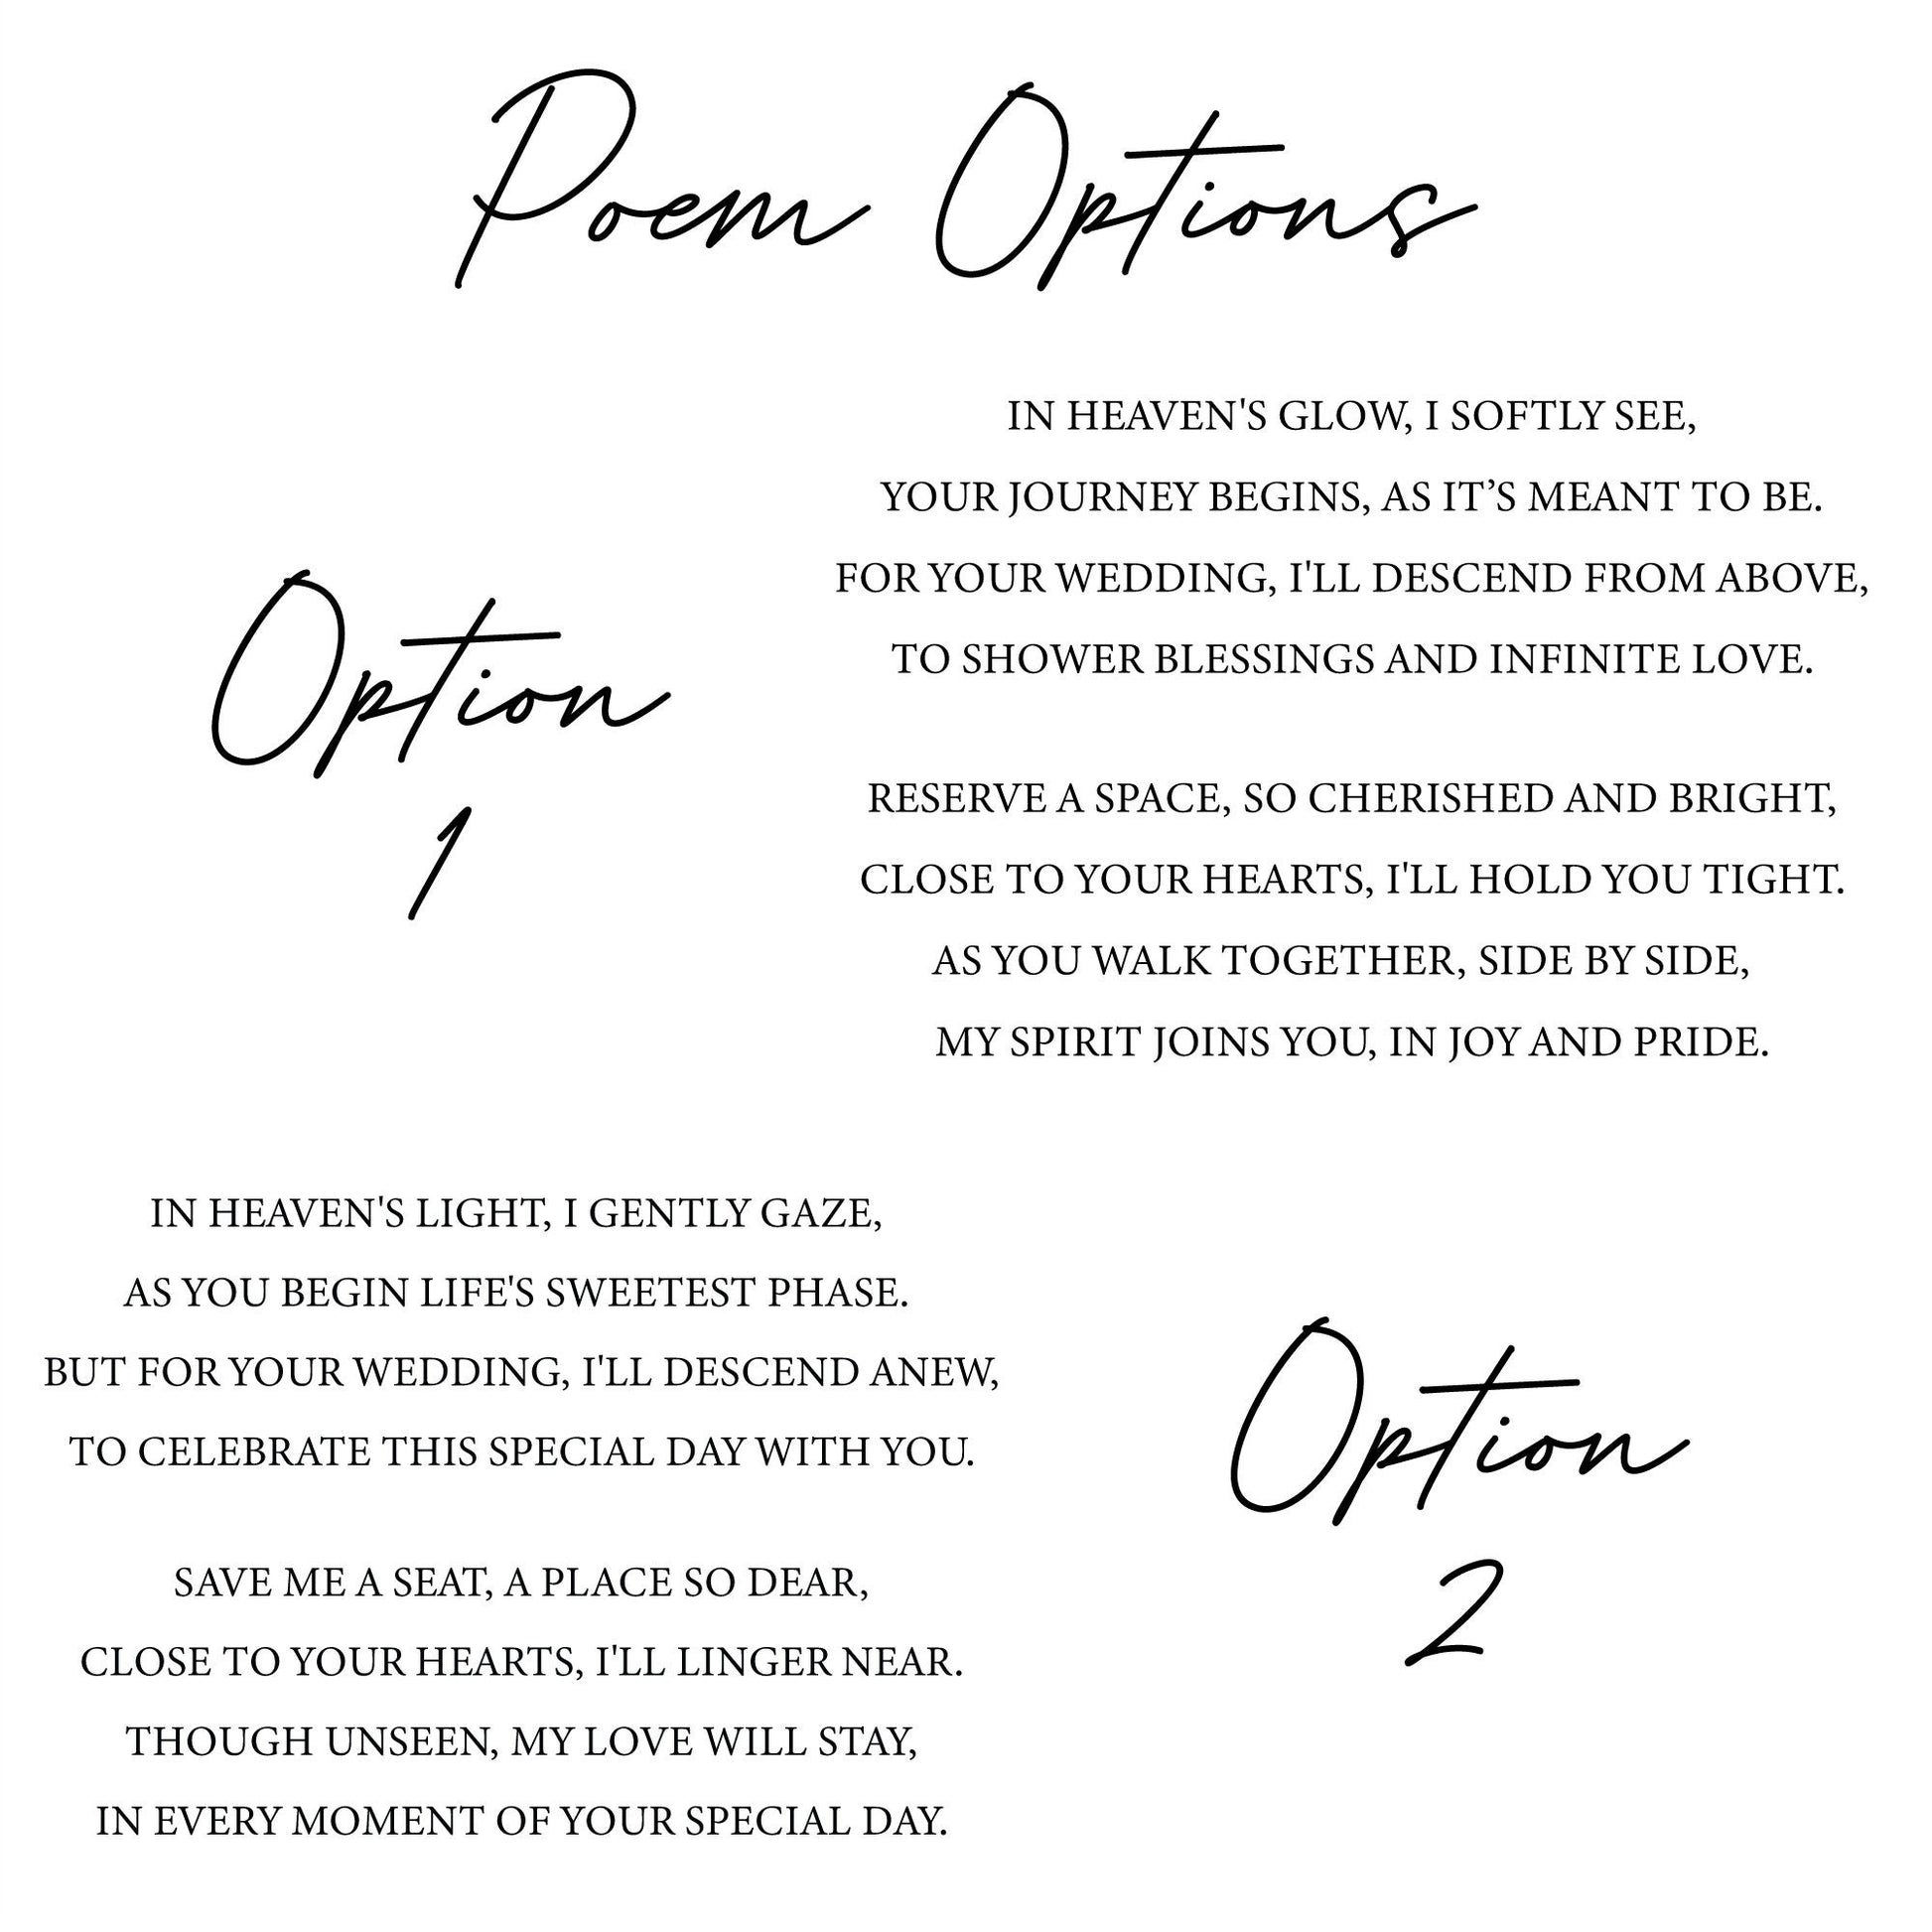 Poem Options
Option
1
IN HEAVEN'S GLOW, I SOFTLY SEE,
YOUR JOURNEY BEGINS, AS IT’S MEANT TO BE.
FOR YOUR WEDDING, I'LL DESCEND FROM ABOVE,
TO SHOWER BLESSINGS AND INFINITE LOVE.
RESERVE A SPACE, SO CHERISHED AND BRIGHT,
CLOSE TO YOUR HEARTS, I'LL HOLD YOU TIGHT.
AS YOU WALK TOGETHER, SIDE BY SIDE,
MY SPIRIT JOINS YOU, IN JOY AND PRIDE.
Option
2
IN HEAVEN'S LIGHT, I GENTLY GAZE,
AS YOU BEGIN LIFE'S SWEETEST PHASE.
BUT FOR YOUR WEDDING, I'LL DESCEND ANEW,
TO CELEBRATE THIS SPECIAL DAY WITH YOU.
SAVE ME A SEAT, A PLACE SO DEAR,
CLOSE TO YOUR HEARTS, I'LL LINGER NEAR.
THOUGH UNSEEN, MY LOVE WILL STAY,
IN EVERY MOMENT OF YOUR SPECIAL DAY.